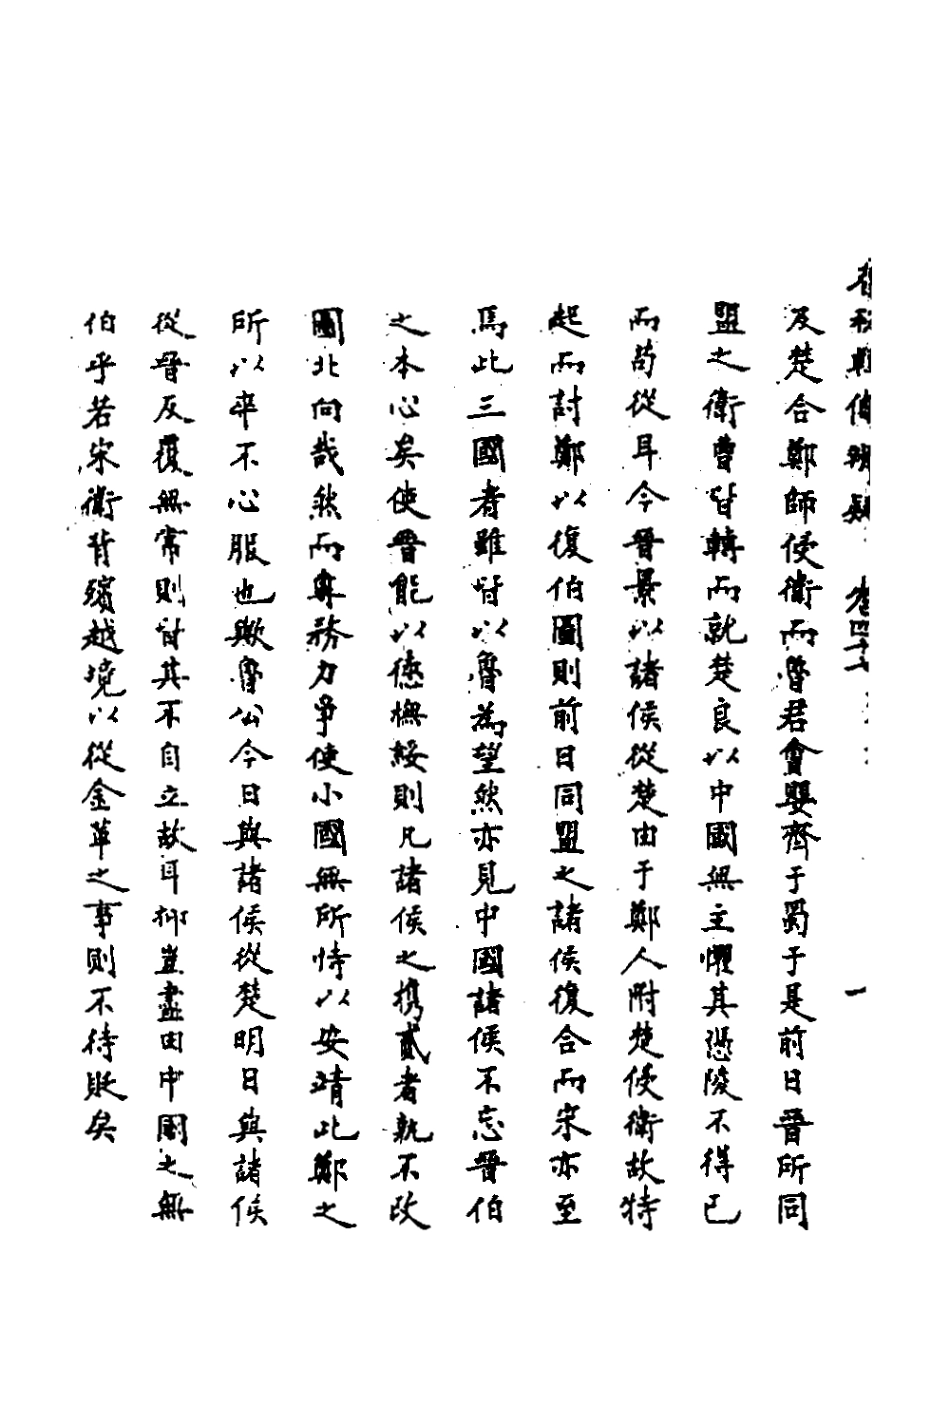 春秋輯傳辨疑 卷四十七 一
及楚合鄭師侵衛而魯君會嬰齊于蜀于是前日晉所同
盟之衛曹皆轉而就楚良以中國無主懼其憑陵不得已
而苟從耳今晉景以諸侯從楚由于鄭人附楚侵衛故特
起而討鄭以復伯圖則前日同盟之諸侯復合而宋亦至
焉此三國者雖皆以魯為望然亦見中國諸侯不忘晉伯
之本心矣使晉能以德撫綏則凡諸侯之携貳者孰不改
圖北向哉然而專務力爭使小國無所恃以安靖此鄭之
所以卒不心服也歟魯公今日與諸侯從楚明日與諸侯
從晉反覆無常則皆其不自立故耳抑豈盡由中國之無
伯乎若宋衛背殯越境以從金革之事則不待貶矣